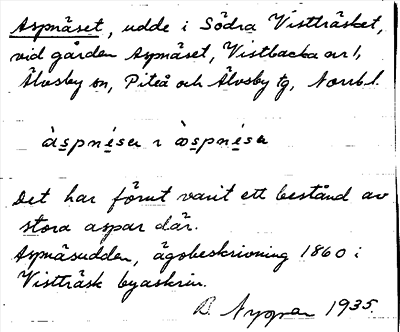 Aspnäset, udde i Södra Vistträsket,
vid gården Aspnäset, Vistbacka nr 1,
Älvsby sn, Piteå och Älvsby tg, Norrb l.
àspnésər ɿ òspnésər
Det har förut varit ett bestånd av
stora aspar där.
Aspnäsudden, ägobeskrivning 1860 i
Vistträsk byaskrin.
B. 1935.